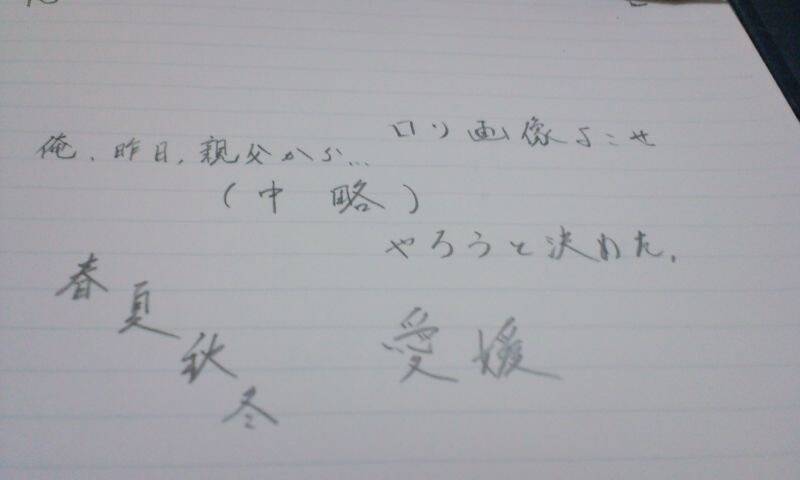 俺、昨日、親父から…
ロリ画像よこせ
(中 略)
やろうと決めた。
春夏秋冬
愛媛